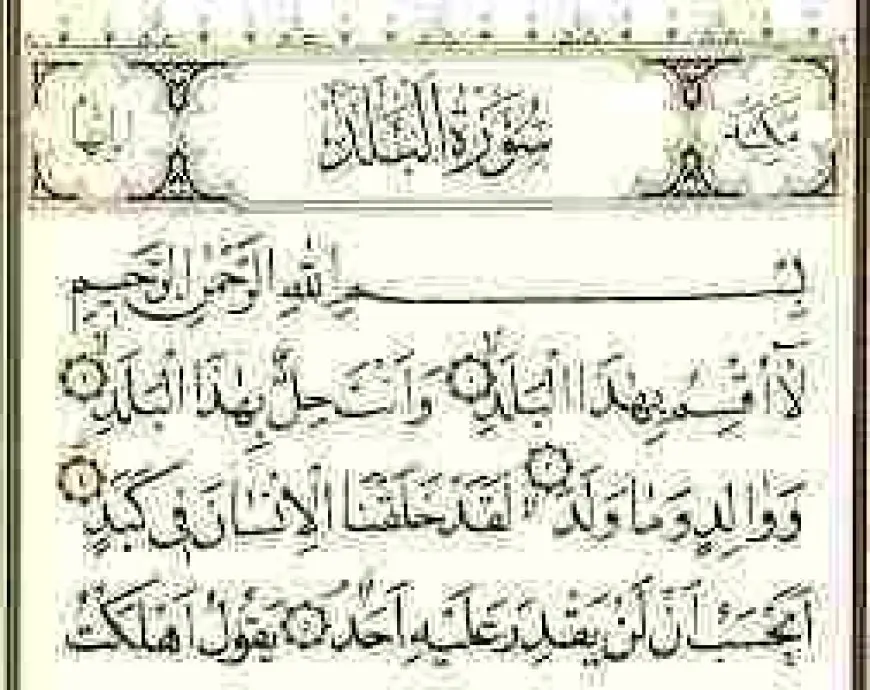 مكية سورة البلد
بسم الله الرحمن الرحيم
لَا أُقْسِمُ بِهٰذَا الْبَلَدِ ۙ وَاَنْتَ حِلٌّ بِهٰذَا الْبَلَدِ ۙ
وَوَالِدٍ وَمَا وَلَدَ ۙ لَقَدْ خَلَقْنَا الْاِنْسَانَ فِي كَبَدٍ
اَيَحْسَبُ اَنْ لَنْ يَقْدِرَ عَلَيْهِ اَحَدٌ ۘ يَقُولُ اَهْلَكْتُ